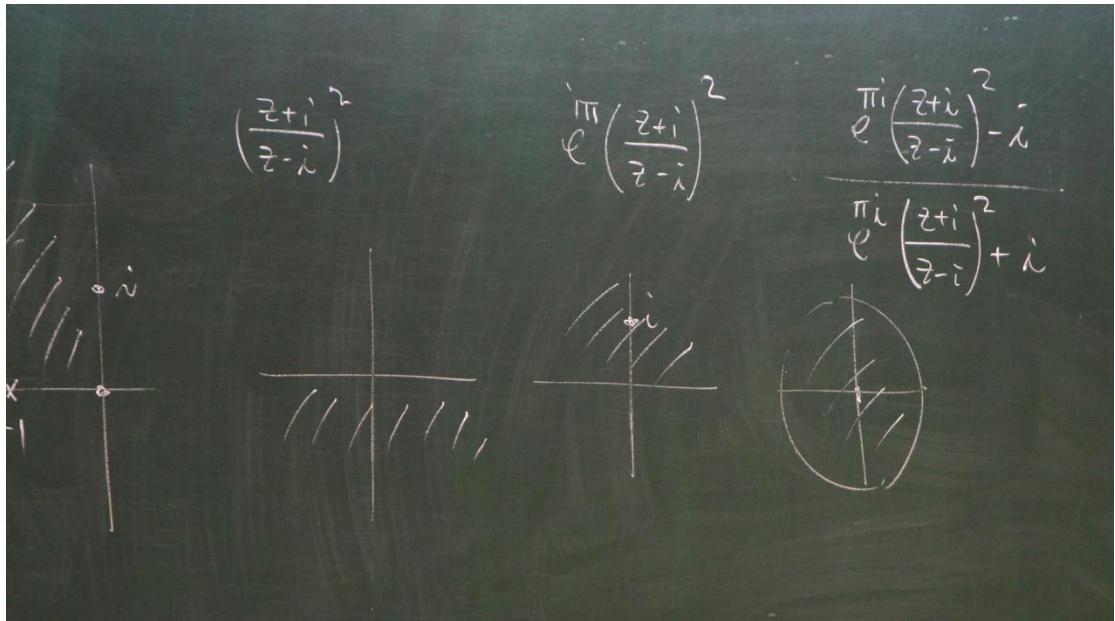 ((z+i)/(z-i))^2
e^{iπ} ((z+i)/(z-i))^2
(e^{πi} ((z+i)/(z-i))^2 - i) / (e^{πi} ((z+i)/(z-i))^2 + i)
i
-1
i